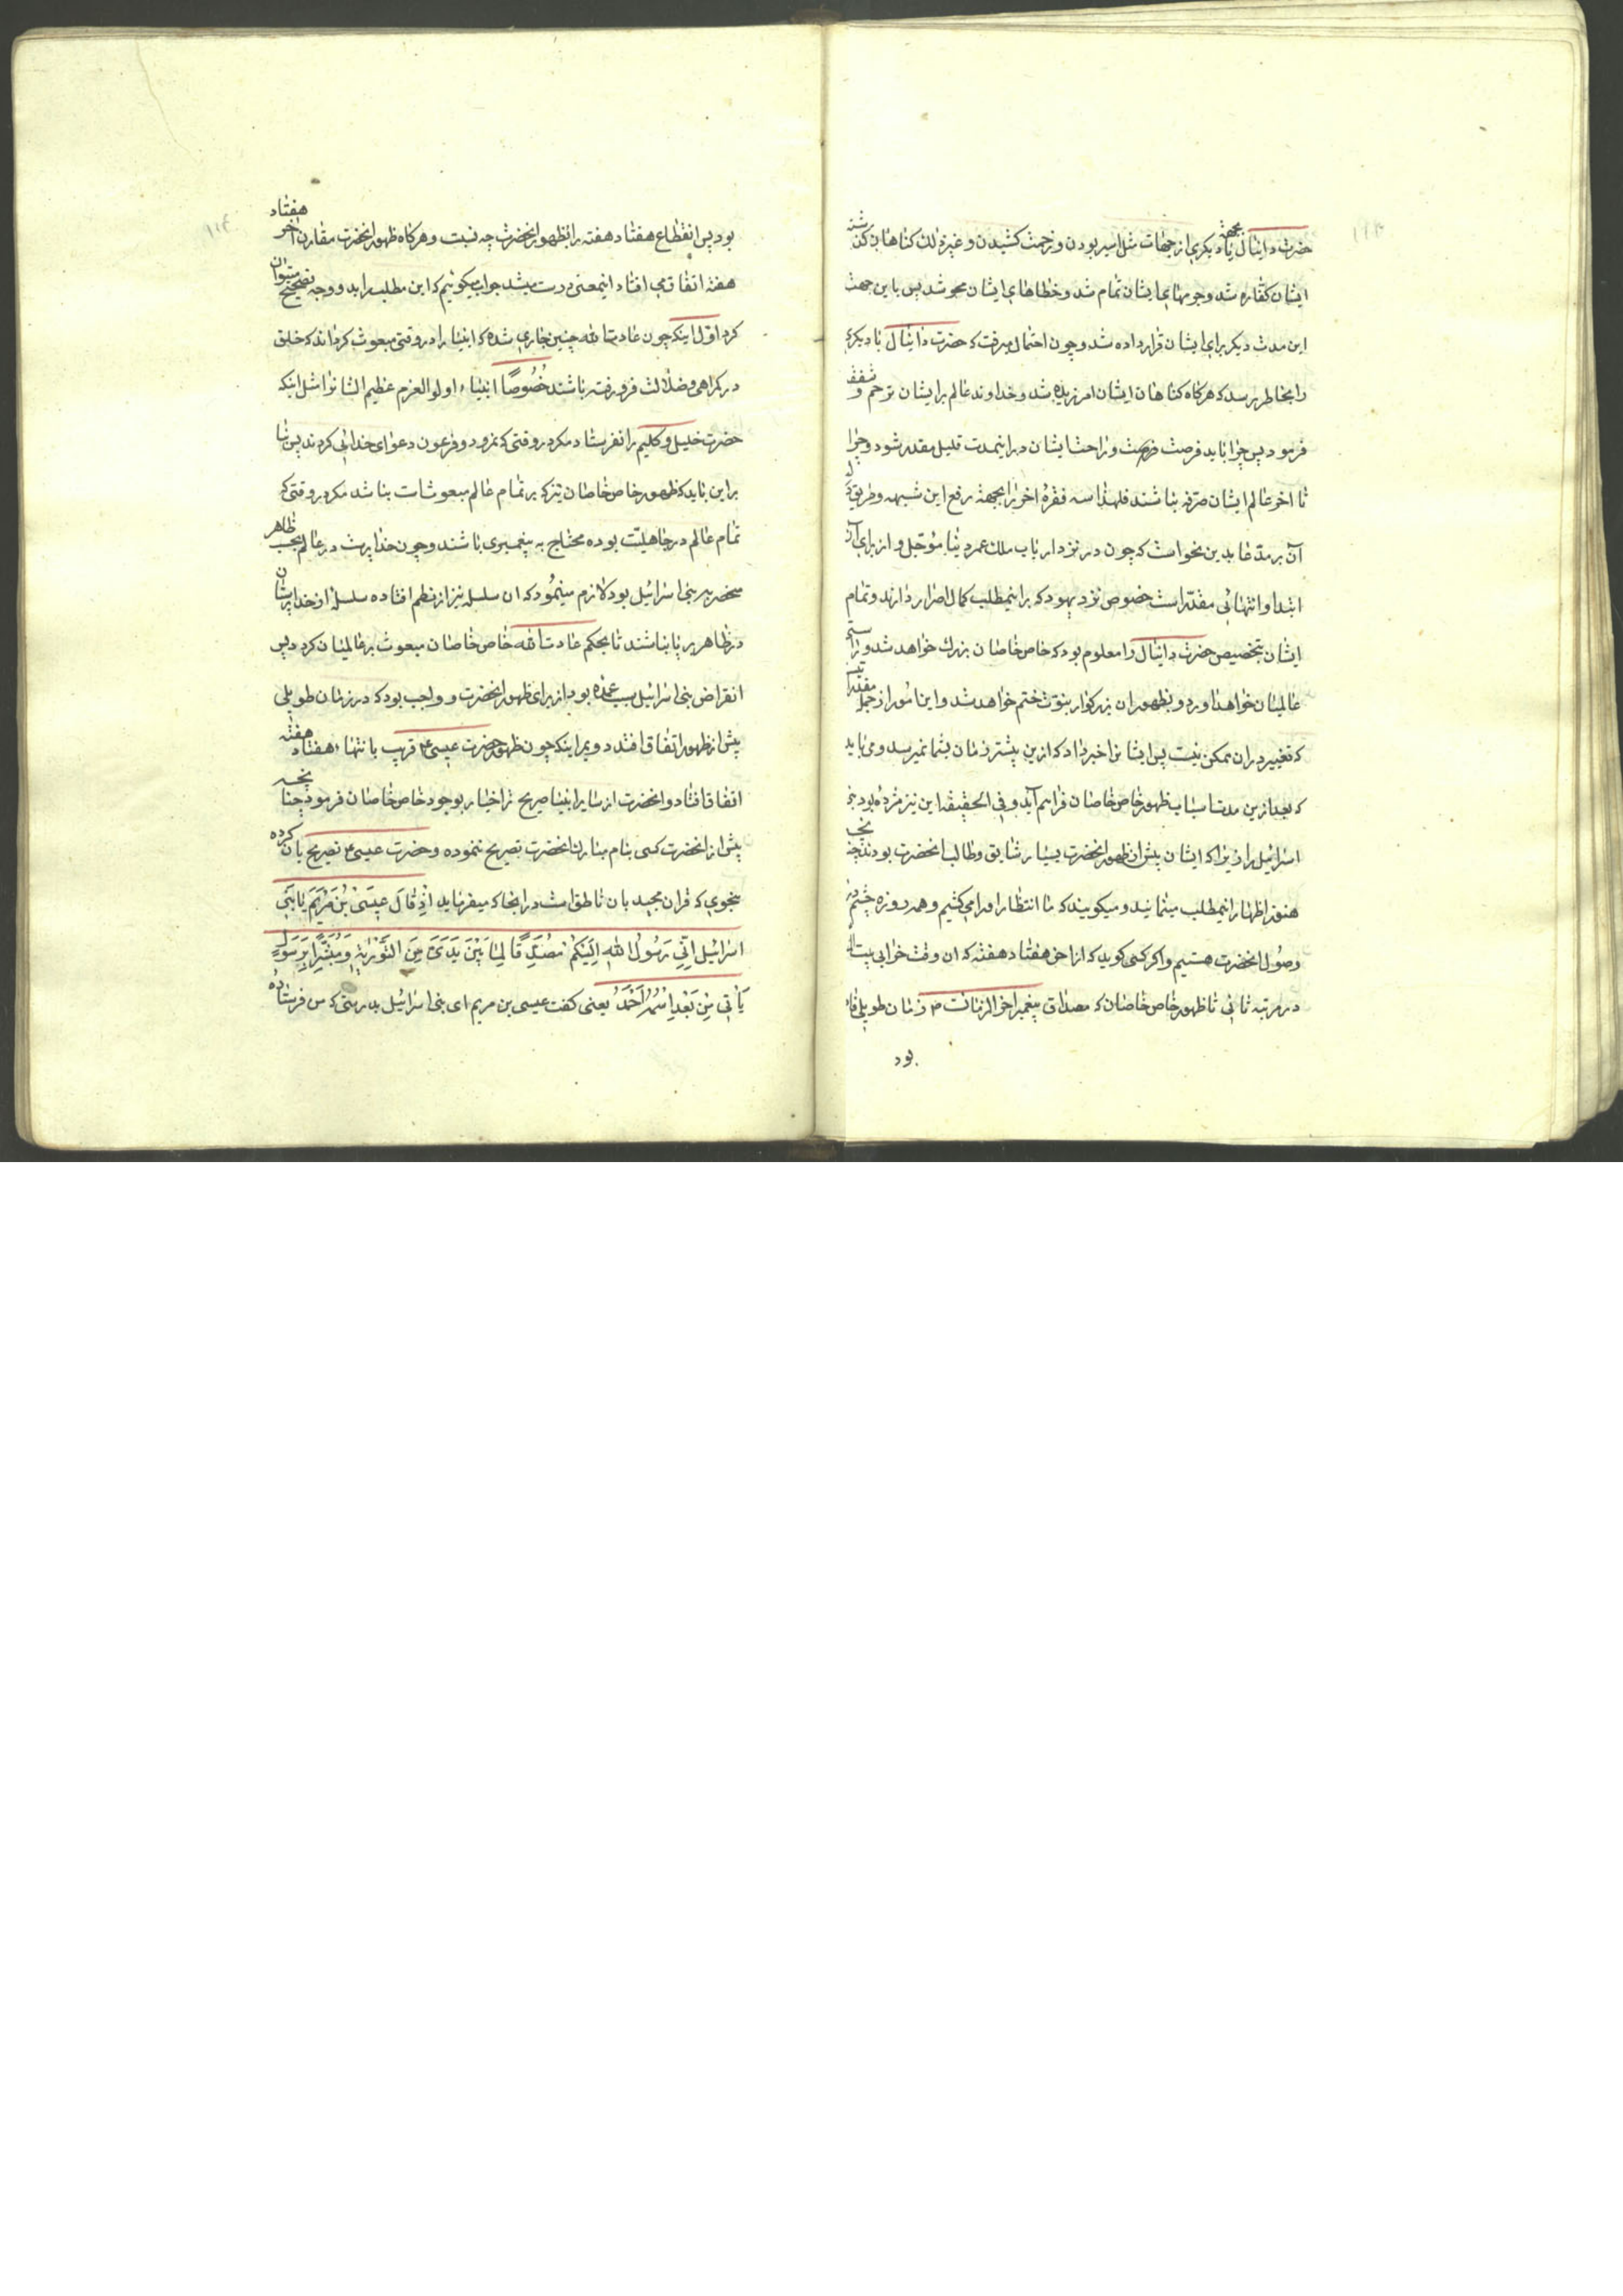 حضرت دانیال یا بجهة دیکری از جهات مثل اسیر بودن و زحمت کشیدن و غیر ذلك کناهان کذشته
ایشان کفاره شد و جریمهای ایشان تمام شد و خطاهای ایشان محو شد پس باین جهت
این مدت دیکر برای ایشان قرار داده شد و چون احتمال میرفت که حضرت دانیال یا دیکری
را بخاطر برسد که هرکاه کناهان ایشان امرزیده شد و خداوند عالم بر ایشان ترحم و شفقت
فرمود پس چرا باید فرصت و راحت ایشان در اینمدت قلیل مقدر شود و چرا
تا اخر عالم ایشان مرفه نباشند فلهذا سه فقرهٔ اخر را بجهة رفع این شبهه
آن بر مدعا بدین نحو است که چون در نزد ارباب ملل عمر دنیا مؤجل و از برای آن
ابتدا و انتهائی مقدر است خصوص نزد یهود که بر اینمطلب کمال اصرار دارند و تمام
ایشان بتخصیص حضرت دانیال را معلوم بود که خاص خاصان بزرك خواهد شد و
عالمیان خواهد اورد و بظهور ان بزرکوار نبوت ختم خواهد شد و این امور از جمله
که تغییر در ان ممکن نیست پس ایشانرا خبر داد که ازین پیشتر زمان بشما نمیرسد و می باید
که بعد ازین مدت اسباب ظهور خاص خاصان فراهم آید و فی الحقیقه این نیز مژده بود بنی
اسرائیل را زیرا که ایشان پیش از ظهور انحضرت بسیار شایق و طالب انحضرت بودند چنانچه
هنوز اظهار اینمطلب مینمایند و میکویند که ما انتظار او را می کشیم و همه روزه چشم در
وصول انحضرت هستیم و اکر کسی کوید که از اخر هفتاد هفته که ان وقت خرابی بیت الله
در مرتبه ثانی تا ظهور خاص خاصان که مصداق پیغمبر اخر الزمانست ص زمان طویلی
بود
بود پس انقطاع هفتاد هفته را بظهور انحضرت چه نسبت و هرکاه ظهور انحضرت مقارن اخر هفتاد
هفته اتفاق می افتاد اینمعنی درست میشد جواب میکوئیم که این مطلب را بدو وجه تصحیح میتوان
کرد اول اینکه چون عادت الله چنین جاری شده که انبیا را در وقتی مبعوث کرداند که خلق
در کمراهی و ضلالت فرو رفته باشند خُصُوصًا انبیاء اولو العزم عظیم الشانرا مثل اینکه
حضرت خلیل و کلیم را نفرستاد مکر در وقتی که نمرود و فرعون دعوای خدائی کردند پس بنا
براین باید که ظهور خاص خاصان نیز که بر تمام عالم مبعوث است نباشد مکر در وقتی که
تمام عالم در جاهلیت بوده محتاج به پیغمبری باشند و چون خدا پرست در عالم بحسب ظاهر
منحصر ببنی اسرائیل بود لازم مینمود که ان سلسله نیز از نظم افتاده سلسلهٔ از خدا پرستان
در ظاهر بر پا نباشند تا بحکم عادت الله خاص خاصان مبعوث بر عالمیان کردد پس
انقراض بنی اسرائیل سبب عمده بود از برای ظهور انحضرت و واجب بود که در زمان طویلی
پیش از ظهور اتفاق افتد دویم اینکه چون ظهور حضرت عیسی ع قریب بانتهاء هفتاد هفته
اتفاق افتاد و انحضرت از سایر انبیا صریح تر اخبار بوجود خاص خاصان فرمود چنانچه
پیش از انحضرت کسی بنام مبارك انحضرت تصریح ننموده و حضرت عیسی ع تصریح بان کرده
بنحوی که قران مجید بان ناطق است در انجا که میفرماید اِذْ قَالَ عِیسَی بْنُ مَرْیَمَ یَا بَنِی
اسرائیل اِنِّی رَسُولُ اللهِ اِلَیْکُمْ مُصَدِّقًا لِمَا بَیْنَ یَدَیَّ مِنَ التَّوْرٰیةِ وَمُبَشِّرًا بِرَسُولٍ
یَأْتِی مِنْ بَعْدِی اسْمُهُ اَحْمَدُ یعنی کفت عیسی بن مریم ای بنی اسرائیل بدرستی که من فرستادهٔ